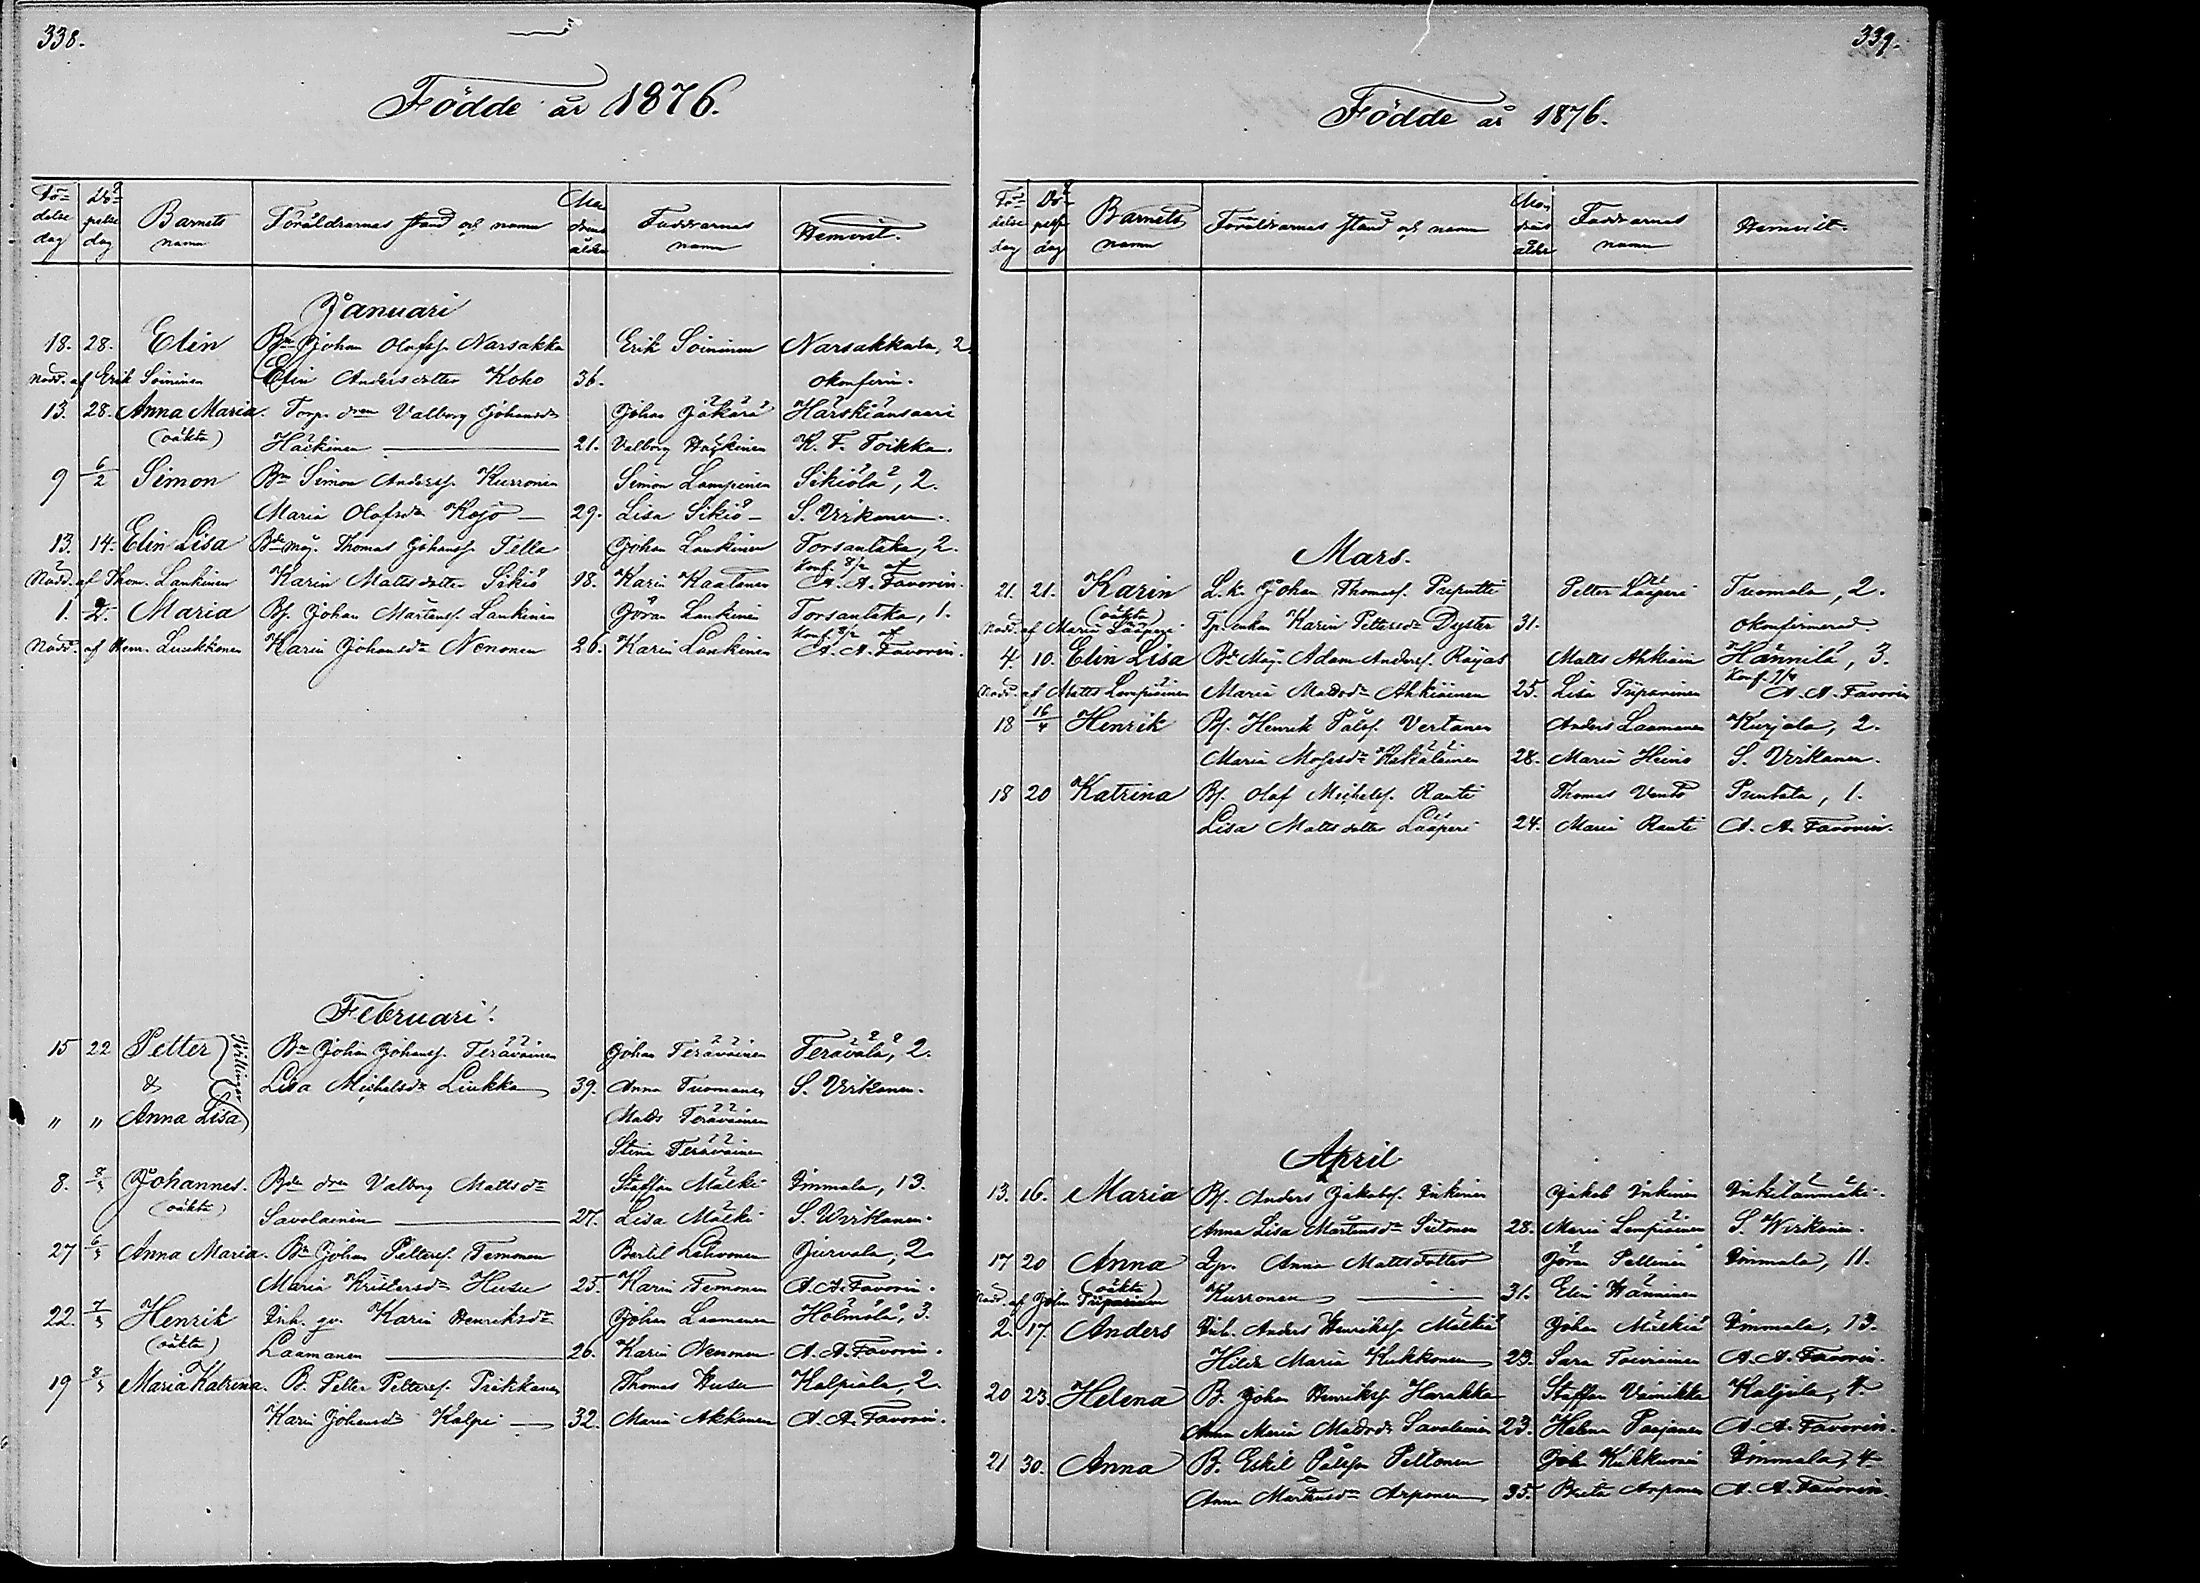 338.
Födde år 1876.
Fö-
delse
dag
Dö-
pelse
dag
Barnets
namn
Föräldrarnas stånd och namn
Mo-
drens
ålder
Faddrarnas
namn
Hemvist.
Januari
18. 28. Elin Bn Johan Olofss. Narsakka Erik Soininen Narsakkala, 2
Nödd. af Erik Soininen Elin Andersdotter Koho 36. okonfirm.
13. 28. Anna Maria. Torp. dren Valborg Johansdr Johan Jäkärä Härskiänsaari
(oäkta) Häkinen 21. Valborg Häkinen K. F. Toikka.
9 6/2 Simon Bn Simon Anderss. Kurronen Simon Lampinen Sikiölä, 2.
Maria Olofsdr Kojo 29. Lisa Sikiö S. Wirkanen.
13. 14. Elin Lisa Bde måg. Thomas Johanss. Tella Johan Lankinen Torsantaka, 2.
Nödd. af Thom. Lankinen Karin Mattsdotter Sikiö 18. Karin Kaatonen konf. 8/2 af A. A. Favorin.
1. 2. Maria Bf. Johan Mårtenss. Lankinen Göran Lankinen Torsantaka, 1.
Nödd. af Henr. Luukkonen Karin Johansdr Nenonen 26. Karin Lankinen konf. 8/2 af A. A. Favorin.
Februari.
15 22 Petter Tvillingar Bn Johan Johanss. Teräväinen Johan Teräväinen Terävälä, 2.
& Lisa Michelsdr Liukka 39. Anna Tuomanen S. Wirkanen.
" " Anna Lisa Matts Teräväinen
Stina Teräväinen
8. 8/3 Johannes. Bde dren Valborg Mattsdr Staffan Mälki Immala, 13.
(oäkta) Savolainen 27. Lisa Mälki S. Wirkanen.
27 6/3 Anna Maria. Bn Johan Petterss. Temonen Bertil Lahvonen Jurvala, 2.
Maria Kristersdr Husu 25. Karin Temonen A. A. Favorin.
22. 7/3 Henrik Inh. qv. Karin Henriksdr Johan Laamanen Holmölä, 3.
(oäkta) Laamanen 26. Karin Nenonen A. A. Favorin.
19 8/3 Maria Katrina. B. Petter Petterss. Pirkkanen Thomas Husu Kalpiala, 2.
Karin Johansdr Kalpi 32. Maria Akkanen A. A. Favorin.
339.
Födde år 1876.
Fö-
delse
dag
Dö-
pelse
dag
Barnets
namn
Föräldrarnas stånd och namn
Mo-
drens
ålder
Faddrarnas
namn
Hemvist.
Mars.
21. 21. Karin L. k. Johan Thomass. Puputti Petter Lääperi Tuomala, 2.
(oäkta)
Nödd. af Maria Lääperi Tp. enkan Karin Pettersdr Dyster 31. okonfirmerad.
4. 10. Elin Lisa Bde Måg. Adam Anderss. Rajas Matts Ahkiain Hännilä, 3.
Nödd. af Matts Lempiäinen Maria Mattsdr Ahkiainen 25. Lisa Tiiparinen Konf. 9/4 A. A. Favorin
18 16/4 Henrik Bf. Henrik Pålss. Vertanen Anders Laamanen Kurjala, 2.
Maria Mosesdr Kakäläinen 28. Maria Heino S. Wirkanen.
18 20 Katrina Bf. Olof Michelss. Rauti Thomas Vento Puntala, 1.
Lisa Mattsdotter Lääperi 24. Maria Rauti A. A. Favorin.
April
13. 16. Maria Bf. Anders Jakobss. Inkinen Jakob Inkinen Inkilänmäki.
Anna Lisa Mårtensdr Siitonen 28. Maria Lempiäinen S. Wirkanen.
17 20 Anna Lp. Anna Mattsdotter Göran Pellinen Immala, 11.
(oäkta)
Nödd. af Johan Tiiparinen Kurronen 31. Elin Hänninen
2. 17. Anders Inh. Anders Henrikss. Mälkiä Johan Mälkiä Immala, 13.
Hilda Maria Kukkonen 23. Sara Toiviainen A. A. Favorin.
20 23. Helena B. Johan Henrikss. Harakka Staffan Vainikka Kaljala, 4.
Anna Maria Mattsdr Savolainen 23. Helena Parjanen A. A. Favorin.
21 30. Anna B. Eskil Pålsson Peltonen Joh. Kukkonen Immala, 4.
Anna Mårtensdr Arponen 35. Brita Arponen A. A. Favorin.